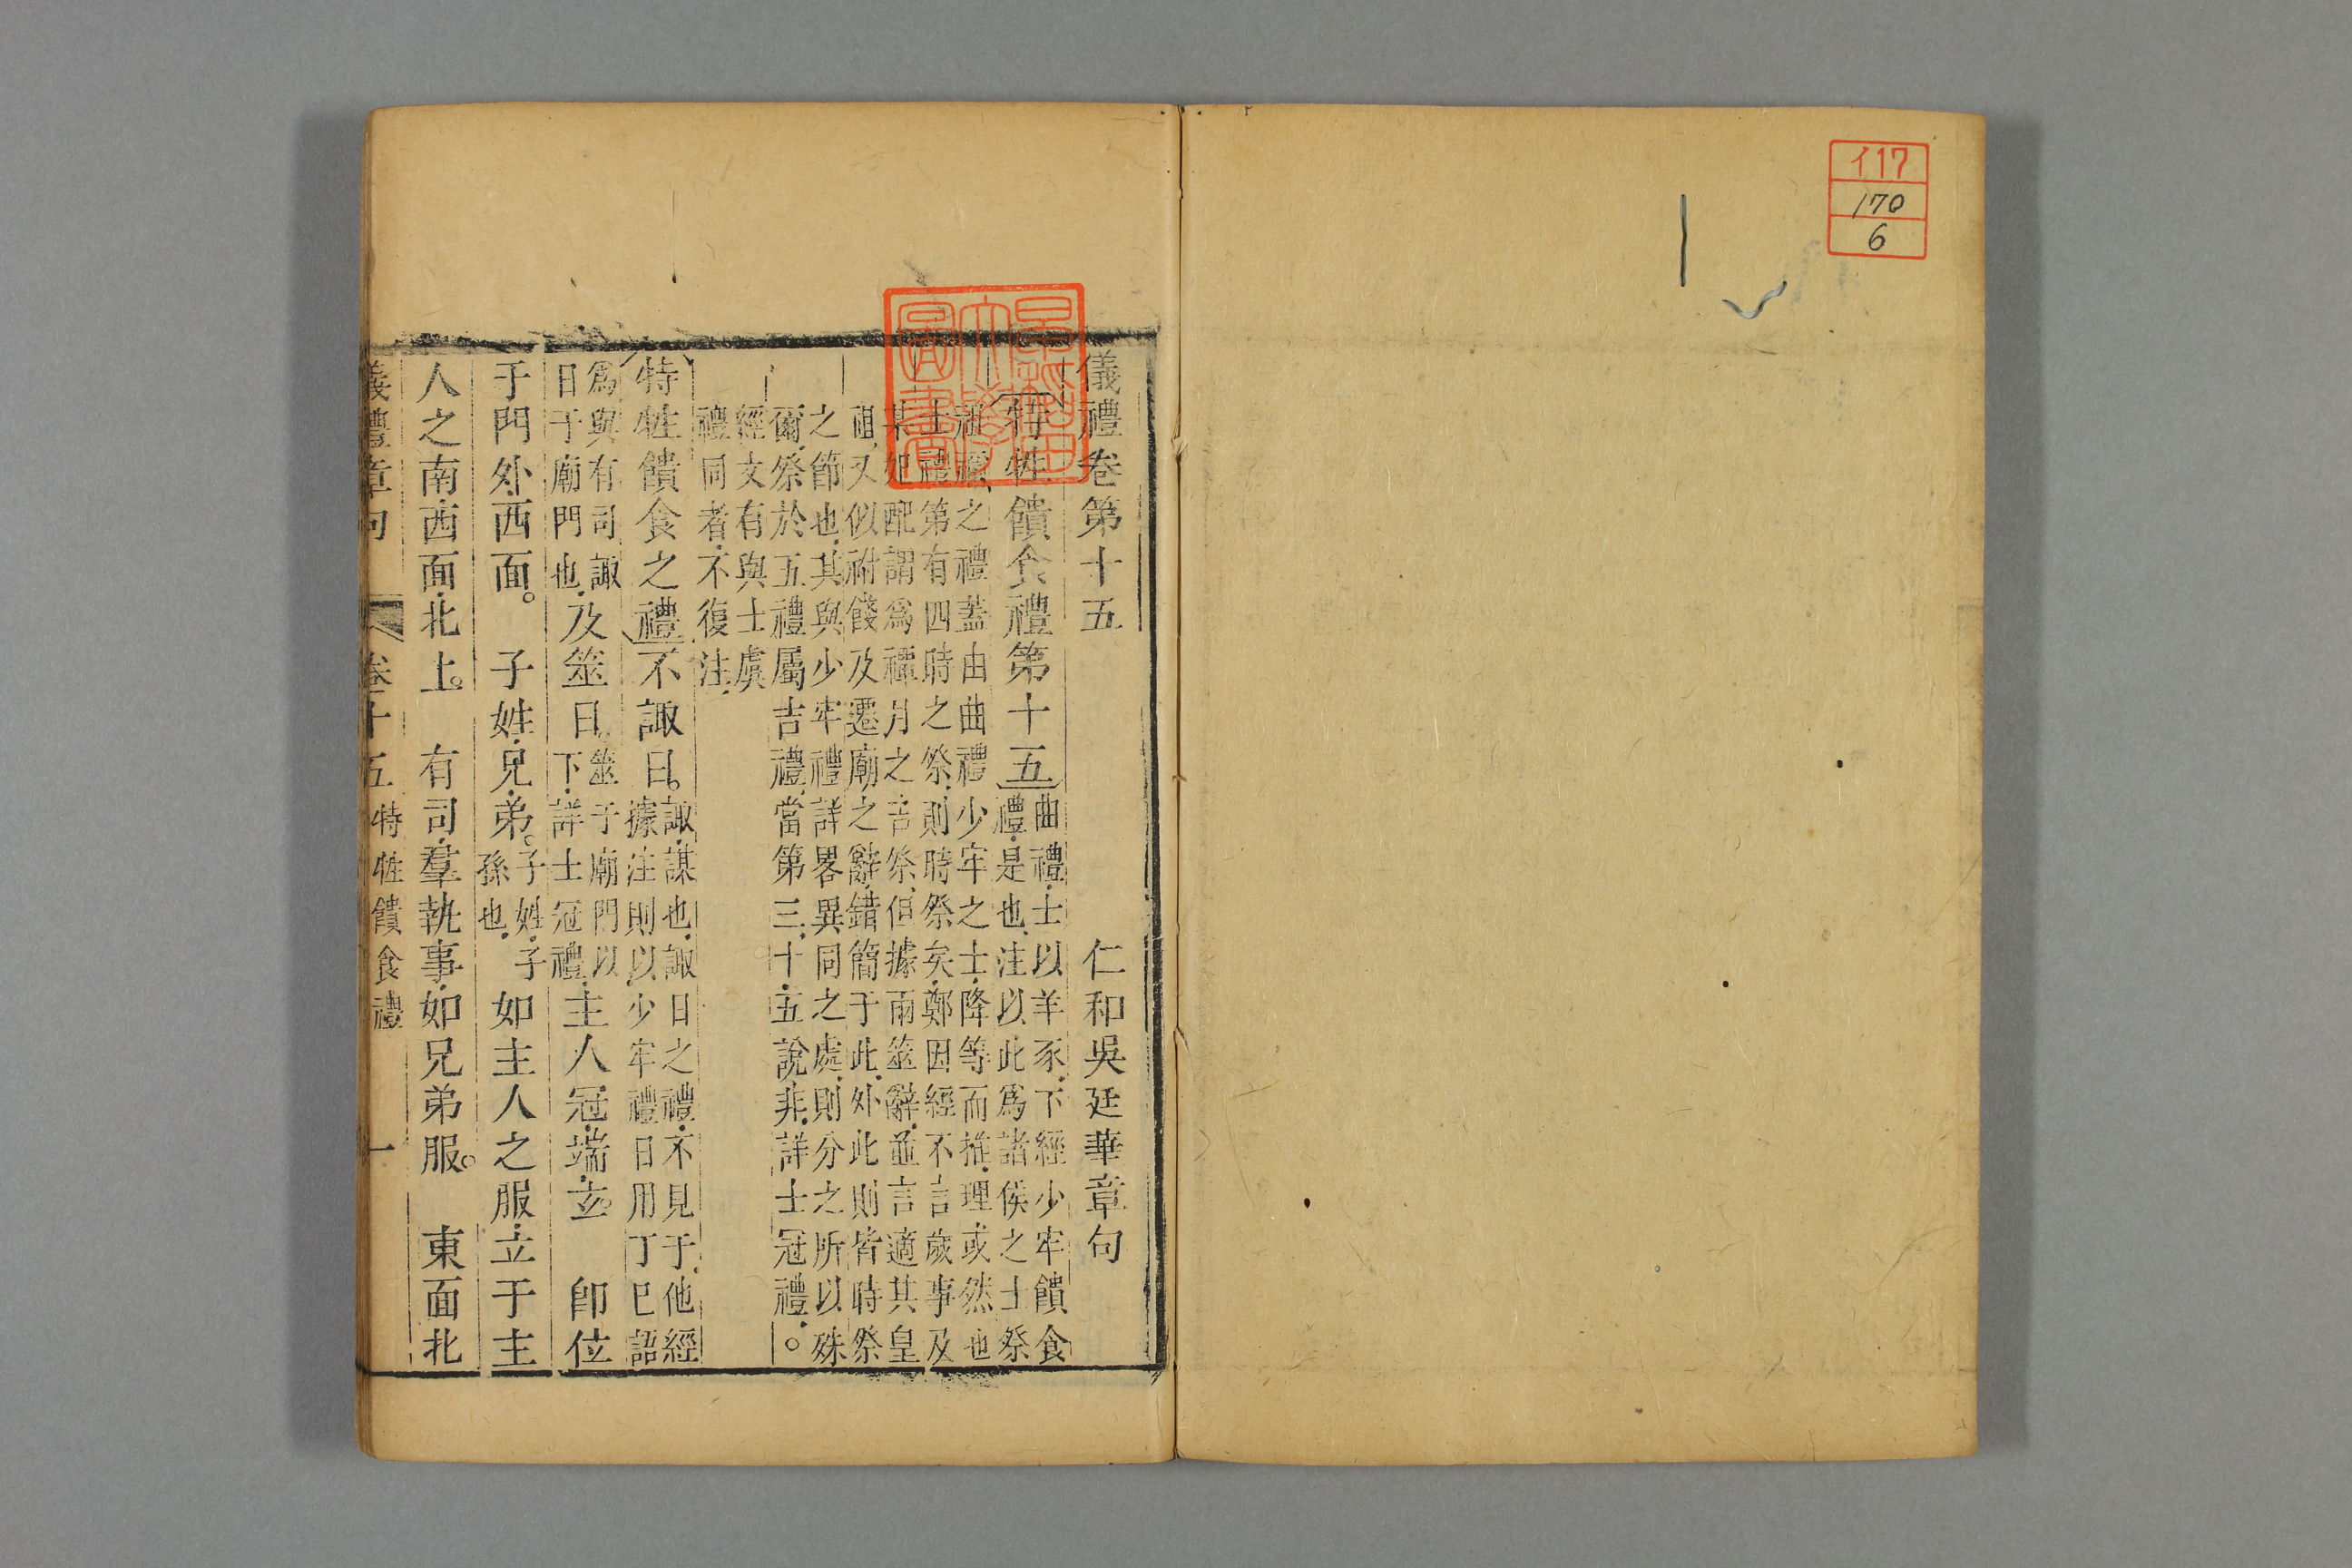 イ17
170
6
儀禮卷第十五　仁和吳廷華章句
特牲饋食禮第十五　曲禮士以羊豕下經少牢饋食
禮是也注以此爲諸侯之士祭
祖禰之禮蓋由曲禮少牢之士降等而推理或然也
士禮第有四時之祭則時祭矣鄭因經不言歲事及
某妃配謂爲禫月之吉祭但據兩筮辭並言適其皇
祖又似祔餞及遷廟之辭錯簡于此外此則皆時祭
之節也其與少牢禮詳畧異同之處則分之所以殊
爾祭於五禮屬吉禮當第三十五說非詳士冠禮。
經文有與士虞
禮同者不復注
特牲饋食之禮不諏日。諏謀也諏日之禮不見于他經
據注則以少牢禮日用丁巳詔
爲與有司諏
日于廟門也及筮日。筮于廟門以
下詳士冠禮主人冠端玄。　卽位
于門外西面。　子姓兄弟。子姓子
孫也如主人之服立于主
人之南西面北上。　有司羣執事如兄弟服。　東面北
儀禮章句　卷十五　特牲饋食禮　一